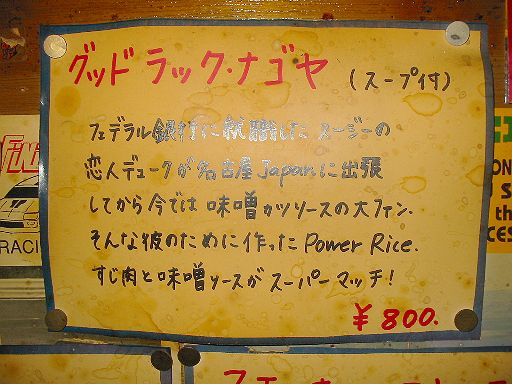 グッドラック・ナゴヤ (スープ付)
フェデラル銀行に就職したスージーの
恋人デュークが名古屋Japanに出張
してから今では味噌カツソースの大ファン.
そんな彼のために作ったPower Rice.
すじ肉と味噌ソースがスーパーマッチ!
¥800.
RACI